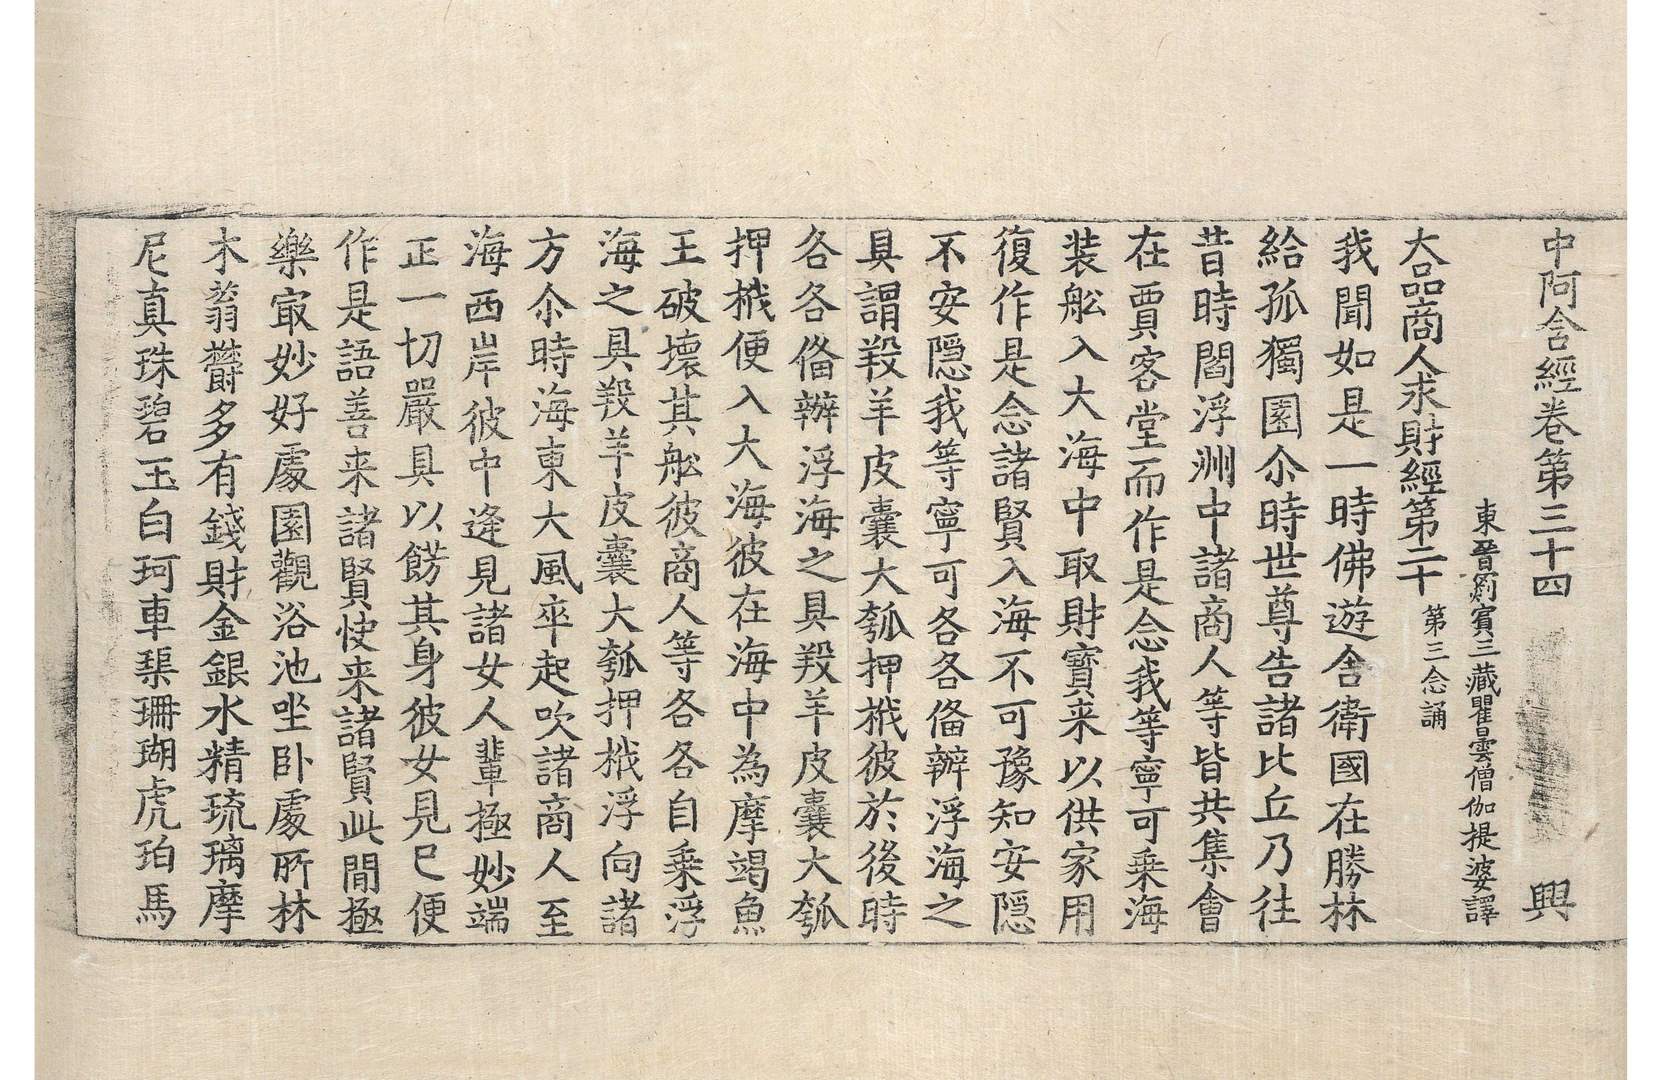 中阿含經卷第三十四　興
東晉罽賓三藏瞿曇僧伽提婆譯
大品商人求財經第二十　第三念誦
我聞如是一時佛遊舍衛國在勝林
給孤獨園尒時世尊告諸比丘乃往
昔時閻浮洲中諸商人等皆共集會
在賈客堂而作是念我等寧可乗海
装舩入大海中取財寶来以供家用
復作是念諸賢入海不可豫知安隠
不安隠我等寧可各各俻辦浮海之
具謂羖羊皮囊大瓠押栰彼於後時
各各俻辦浮海之具羖羊皮囊大瓠
押栰便入大海彼在海中為摩竭魚
王破壞其舩彼商人等各各自乗浮
海之具羖羊皮囊大瓠押栰浮向諸
方尒時海東大風卒起吹諸商人至
海西岸彼中逢見諸女人輩極妙端
正一切嚴具以餝其身彼女見已便
作是語善来諸賢快来諸賢此間極
樂㝡妙好處園觀浴池坐卧處所林
木蓊欝多有錢財金銀水精琉璃摩
尼真珠碧玉白珂車璖珊瑚虎珀馬